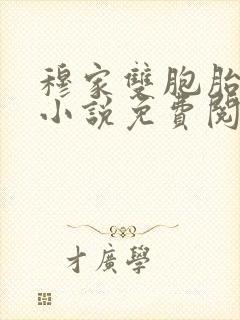 穆家雙胞胎
小説免費閱
才廣學